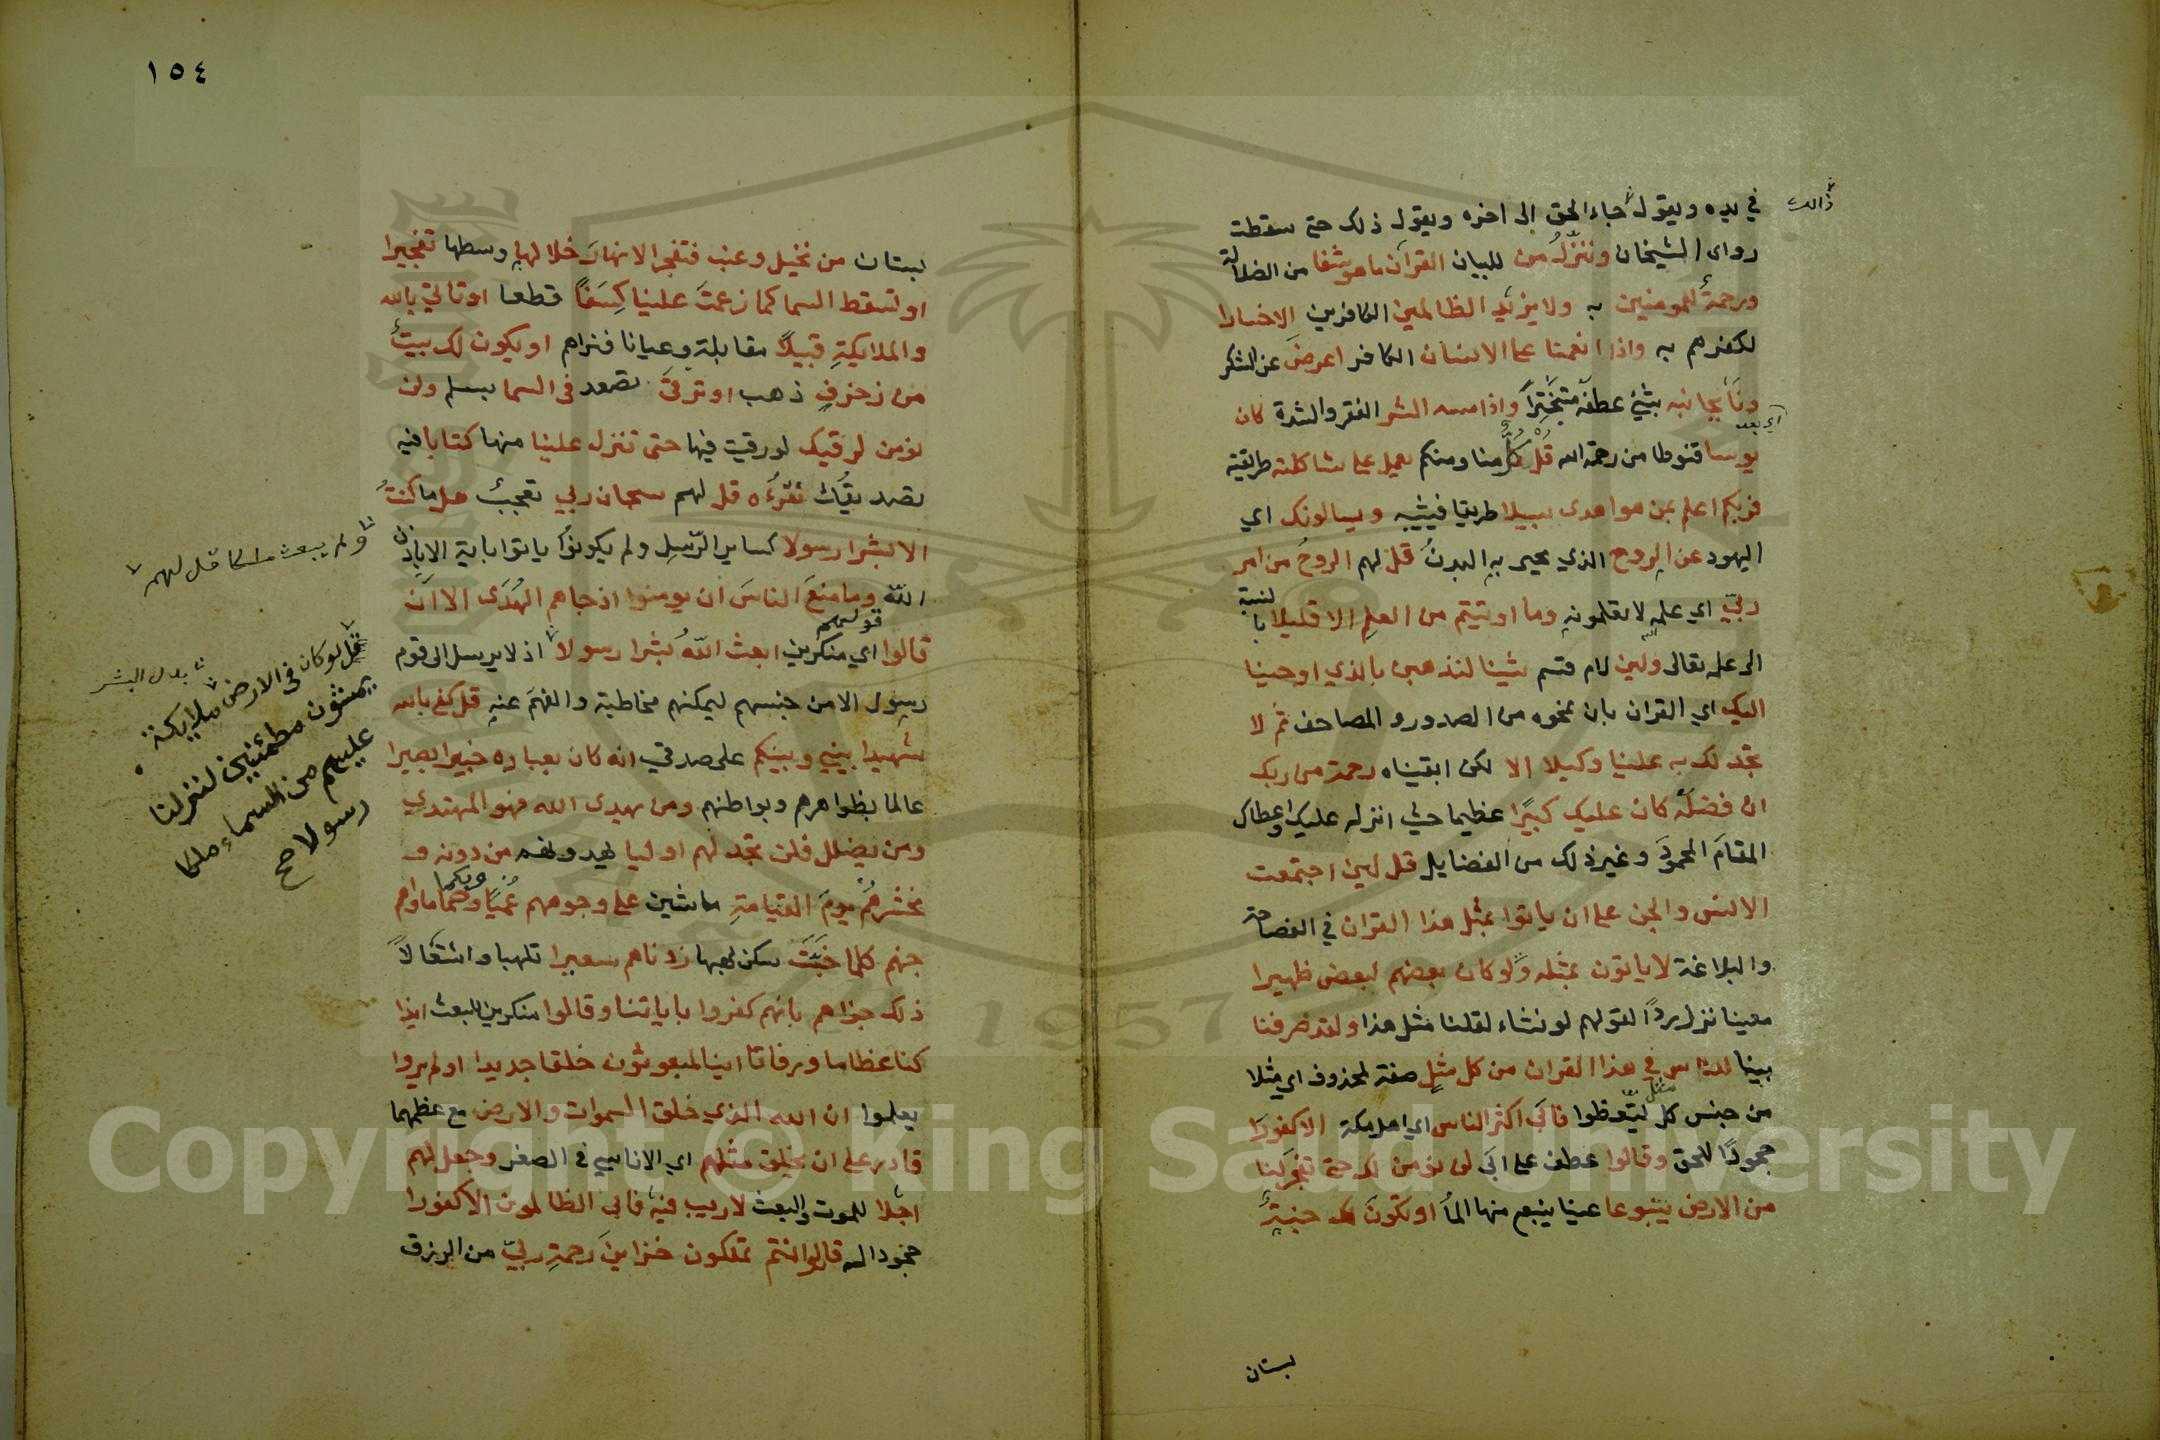 في يده ويقول جاء الحق إلى اخره ويقول ذلك حتى سقطت
ذالك
رواه الشيخان وننزل من للبيان القرآن ما هو شفا من الضلالة
ورحمة للمومنين به ولا يزيد الظالمين الكافرين الا خسارا
لكفرهم به واذا انعمنا على الانسان الكافر اعرض عن الشكر
ونا بجانبه يثني عطفه متبخترا واذا مسه الشر الفقر والشدة كان
يوسا قنوطا من رحمة الله قل كل منا ومنكم يعمل على شاكلته طريقته
فربكم اعلم بمن هو اهدى سبيلا طريقا فيثيبه ويسالونك اي
اليهود عن الروح الذي يحيى به البدن قل لهم الروح من امر
ربي اي علمه لا يعلمونه وما اوتيتم من العلم الا قليلا بالنسبة
الى علمه تعالى ولين لام قسم شينا لنذهبن بالذي اوحينا
اليك اي القران بان نمحوه من الصدور و المصاحف ثم لا
تجد لك به علينا وكيلا الا لكن ابقيناه رحمة من ربك
ان فضله كان عليك كبيرا عظيما حيث انزله عليك واعطاك
المقام المحمود وغير ذلك من الفضايل قل لين اجتمعت
الانس والجن على ان ياتوا بمثل هذا القران في الفصاحة
والبلاغة لا ياتون بمثله ولو كان بعضهم لبعض ظهيرا
معينا نزل ردا لقولهم لو نشاء لقلنا مثل هذا ولقد صرفنا
بينا للناس في هذا القران من كل مثل صفة لمحذوف اي مثلا
من جنس كل مثل ليتعظوا فابى اكثر الناس اي اهل مكة الا كفورا
جحودا للحق وقالوا عطف على ابى لن نومن لك حتى تفجر لنا
من الارض ينبوعا عينا ينبع منها الما او تكون لك جنة
بستان
١٥٤
بستان من نخيل وعنب فتفجر الانهار خلالها وسطها تفجيرا
او تسقط السما كما زعمت علينا كسفا قطعا او تاتي بالله
والملايكة قبيلا مقابلة وعيانا فنراهم او يكون لك بيت
من زخرف ذهب او ترقى تصعد في السما بسلم ولن
نومن لرقيك لو رقيت فيها حتى تنزل علينا منها كتابا فيه
تصديقك نقرؤه قل لهم سبحان ربي تعجب هل ما كنت
الا بشرا رسولا كساير الرسل ولم يكونوا ياتوا باية الا باذن
الله وما منع الناس ان يومنوا اذ جاهم الهدى الا ان
قالوا قولهم اي منكرين ابعث الله بشرا رسولا اذ لا يرسل الى قوم
رسول الا من جنسهم ليمكنهم مخاطبة والفهم عنه قل كفى بالله
شهيدا بيني وبينكم على صدقي انه كان بعباده خبيرا بصيرا
عالما بظواهرهم وبواطنهم ومن يهدى الله فهو المهتدي
ومن يضلل فلن تجد لهم اوليا يهدونهم من دونه و
نحشرهم يوم القيامة ماشين على وجوههم عميا وبكما وصما ماواهم
جهنم كلما خبت سكن لهبها زدناهم سعيرا تلهبا واشتعالا
ذلك جزاهم بانهم كفروا باياتنا وقالوا منكرين للبعث ايذا
كنا عظاما ورفاتا اينا لمبعوثون خلقا جديدا اولم يروا
يعلموا ان الله الذي خلق السموات والارض مع عظمهما
قادر على ان يخلق مثلهم اي الاناسي في الصغر وجعل لهم
اجلا للموت والبعث لا ريب فيه فابى الظالمون الا كفورا
جحودا له قل لو انتم تملكون خزاين رحمة ربي من الرزق
ولم يبعث ملكا قل لهم
قل لو كان في الارض ملايكة
بدل البشر
يمشون مطمئنين لنزلنا
عليهم من السماء ملكا
رسولا صح
Copyright © King Saud University
1957